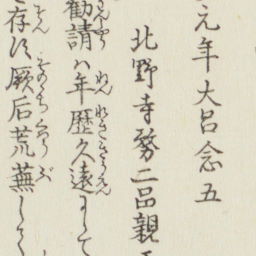 元年大呂念五
北野寺務二品親王
勧請ハ年歴久遠にして
存す厥后荒蕪して